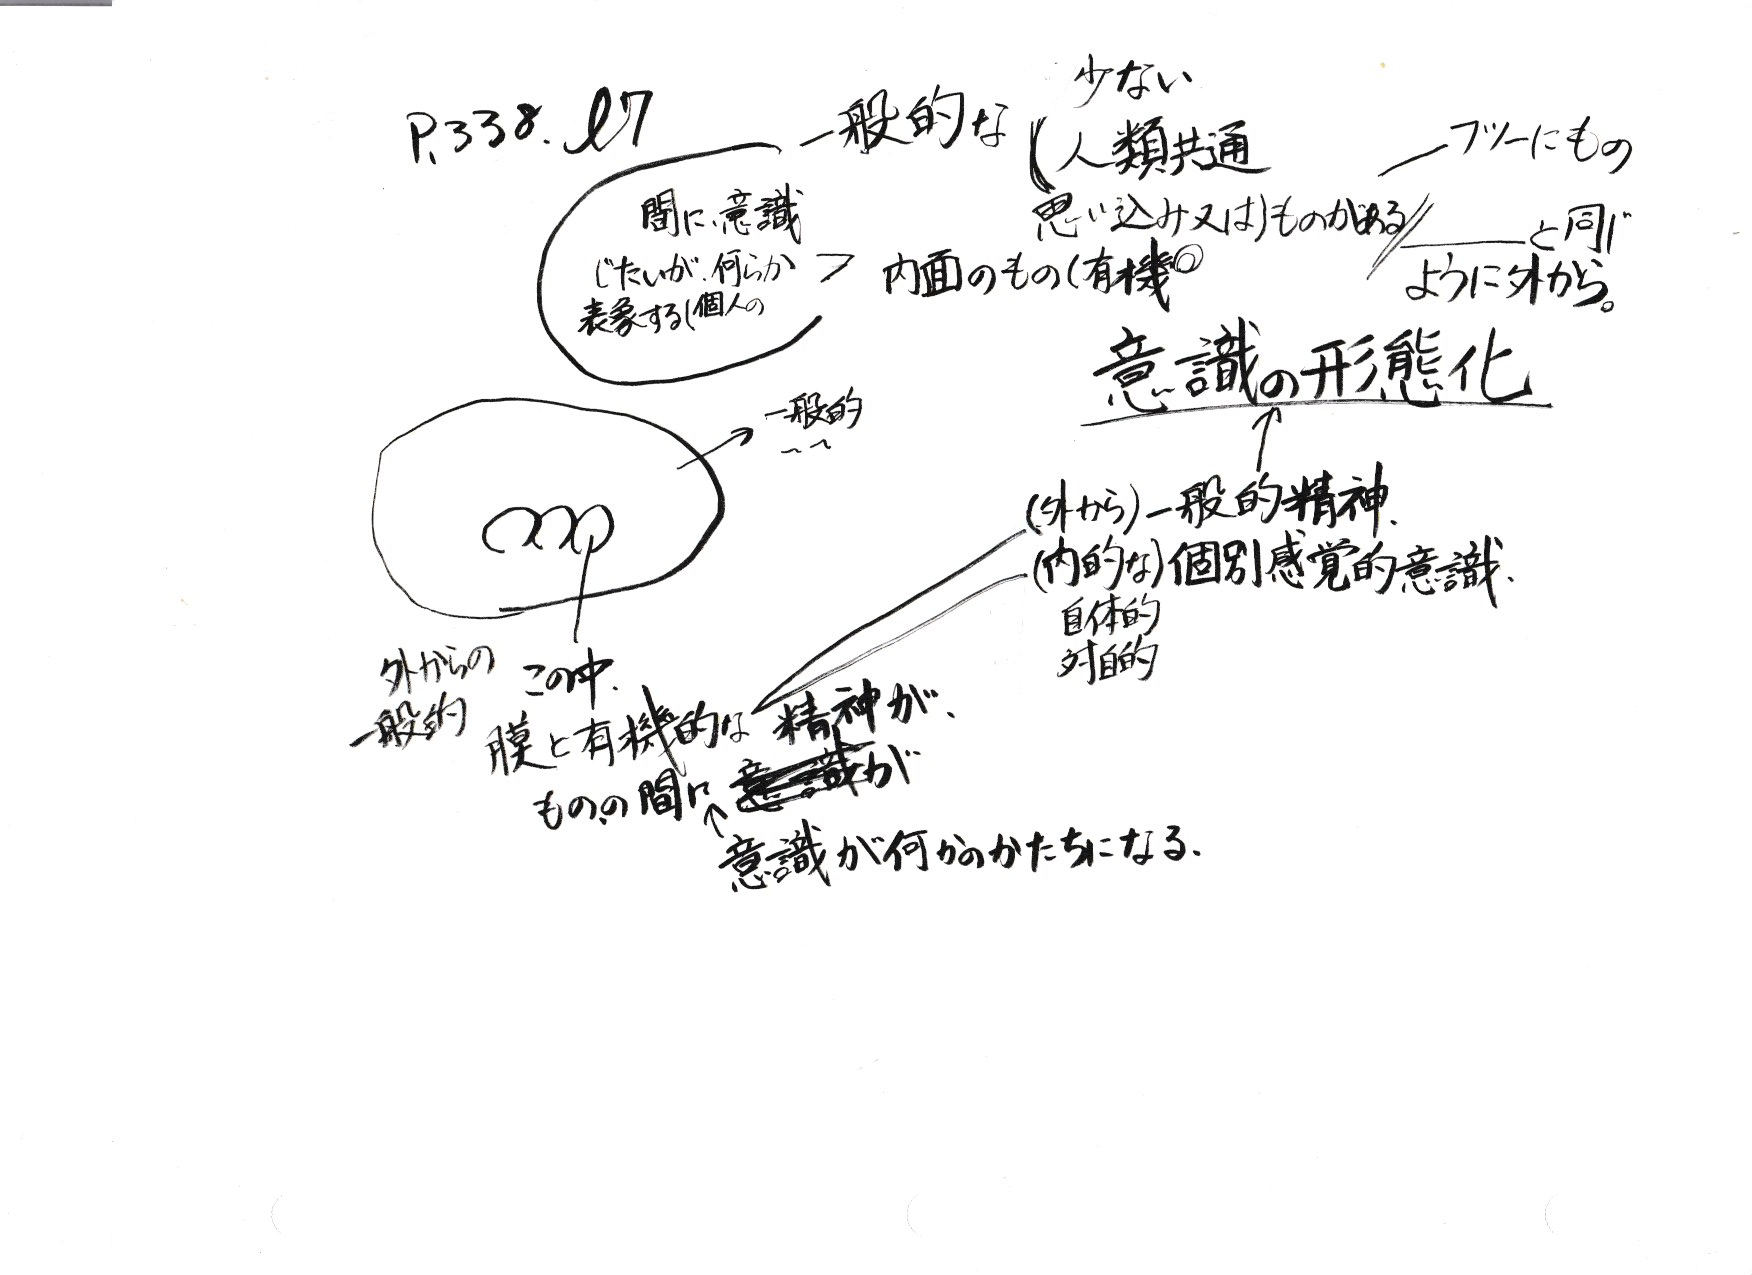 P.338. l7
一般的な
少ない
(人類共通
思い込み又は)ものがある
フツーにもの
と同じ
ように外から。
間に、意識
じたいが、何らか
表象する(個人の
内面のもの(有機
意識の形態化
一般的
(外から)一般的精神.
(内的な)個別感覚的意識.
自体的
対自的
外からの
一般的
この中.
膜と有機的な 精神が、
ものの間に
意識が何かのかたちになる.